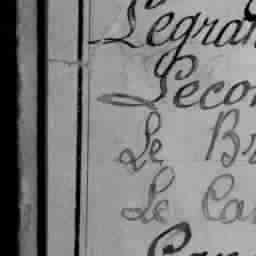 Legran
Lecon
Le Br
Le Ca
Can